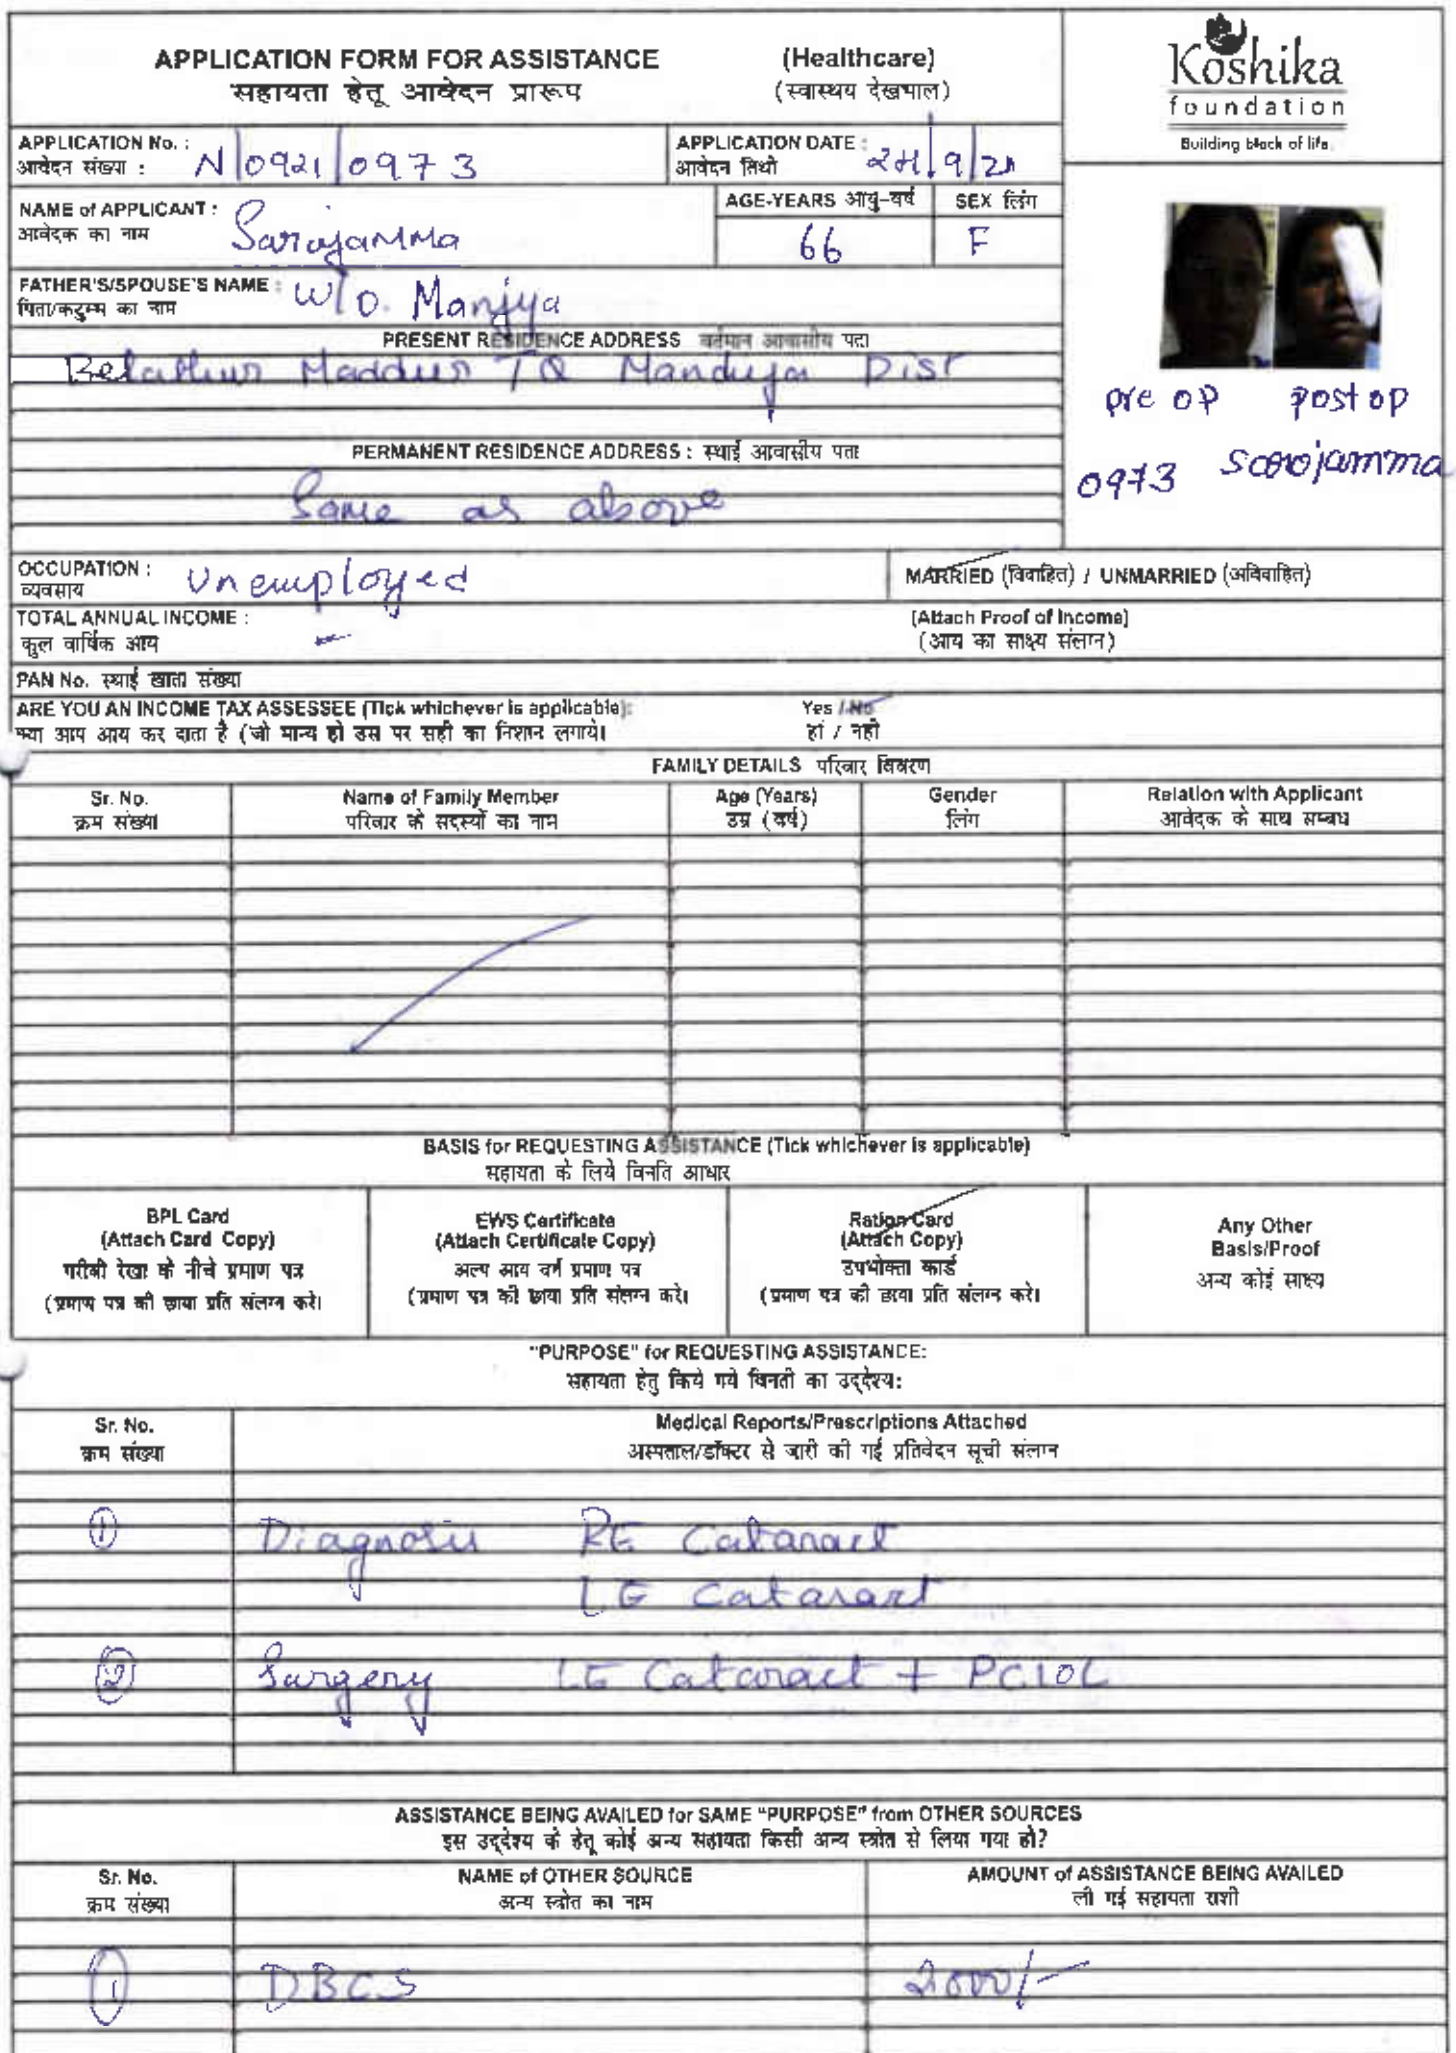 APPLICATION FORM FOR ASSISTANCE (Healthcare)
सहायता हेतू आवेदन प्रारूप (स्वास्थय देखभाल)
Koshika
foundation
Building block of life.
APPLICATION No. : N/0921/0973
आवेदन संख्या :
APPLICATION DATE :
आवेदन तिथी /9/21
NAME of APPLICANT : Sarojamma
आवेदक का नाम
AGE-YEARS आयु-वर्ष SEX लिंग
66 F
FATHER'S/SPOUSE'S NAME : W/o. Manjya
पिता/कटुम्ब का नाम
PRESENT RESIDENCE ADDRESS वर्तमान आवासीय पता
Belathur Maddur TQ Mandya Dist
pre op post op
0973 Sarojamma
PERMANENT RESIDENCE ADDRESS : स्थाई आवासीय पता
Same as above
OCCUPATION : Unemployed
व्यवसाय
MARRIED (विवाहित) / UNMARRIED (अविवाहित)
TOTAL ANNUAL INCOME : (Attach Proof of Income)
कुल वार्षिक आय (आय का साक्ष्य संलग्न)
PAN No. स्थाई खाता संख्या
ARE YOU AN INCOME TAX ASSESSEE (Tick whichever is applicable): Yes / No
क्या आप आय कर दाता है (जो मान्य हो उस पर सही का निशान लगाये। हां / नही
FAMILY DETAILS परिवार विवरण
Sr. No. Name of Family Member Age (Years) Gender Relation with Applicant
क्रम संख्या परिवार के सदस्यों का नाम उम्र (वर्ष) लिंग आवेदक के साथ सम्बध
BASIS for REQUESTING ASSISTANCE (Tick whichever is applicable)
सहायता के लिये विनति आधार
BPL Card
(Attach Card Copy)
गरीबी रेखा के नीचे प्रमाण पत्र
(प्रमाण पत्र की छाया प्रति संलग्न करे।
EWS Certificate
(Attach Certificate Copy)
अल्प आय वर्ग प्रमाण पत्र
(प्रमाण पत्र की छाया प्रति संलग्न करे।
Ration Card
(Attach Copy)
उपभोक्ता कार्ड
(प्रमाण पत्र की छाया प्रति संलग्न करे।
Any Other
Basis/Proof
अन्य कोई साक्ष्य
"PURPOSE" for REQUESTING ASSISTANCE:
सहायता हेतु किये गये विनती का उद्देश्य:
Sr. No. Medical Reports/Prescriptions Attached
क्रम संख्या अस्पताल/डॉक्टर से जारी की गई प्रतिवेदन सूची संलग्न
1 Diagnosis RE Cataract
LE Cataract
2 Surgery LE Cataract + PCIOL
ASSISTANCE BEING AVAILED for SAME "PURPOSE" from OTHER SOURCES
इस उद्देश्य के हेतू कोई अन्य सहायता किसी अन्य स्त्रोत से लिया गया हो?
Sr. No. NAME of OTHER SOURCE AMOUNT of ASSISTANCE BEING AVAILED
क्रम संख्या अन्य स्त्रोत का नाम ली गई सहायता राशी
1 DBCS 2000/-